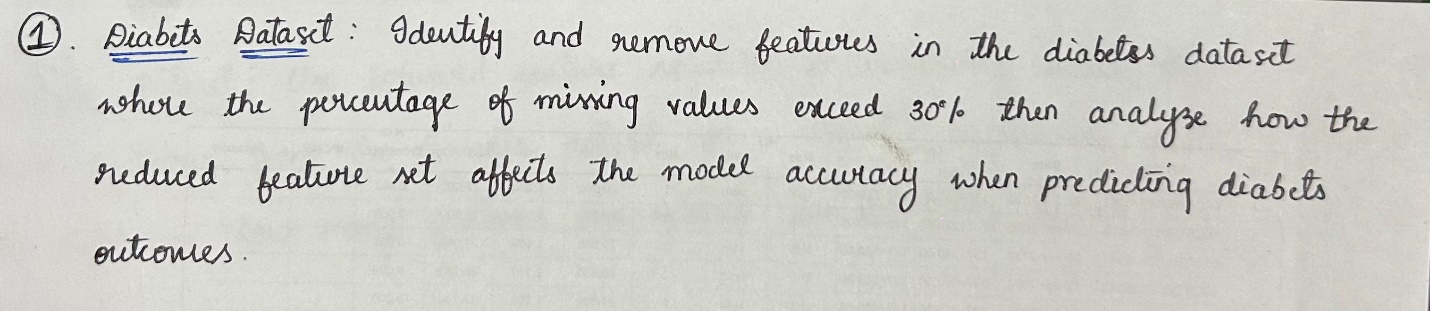 ①. Diabets Dataset : Identify and remove features in the diabetes dataset
where the percentage of missing values exceed 30% then analyze how the
reduced feature set affects the model accuracy when predicting diabets
outcomes.